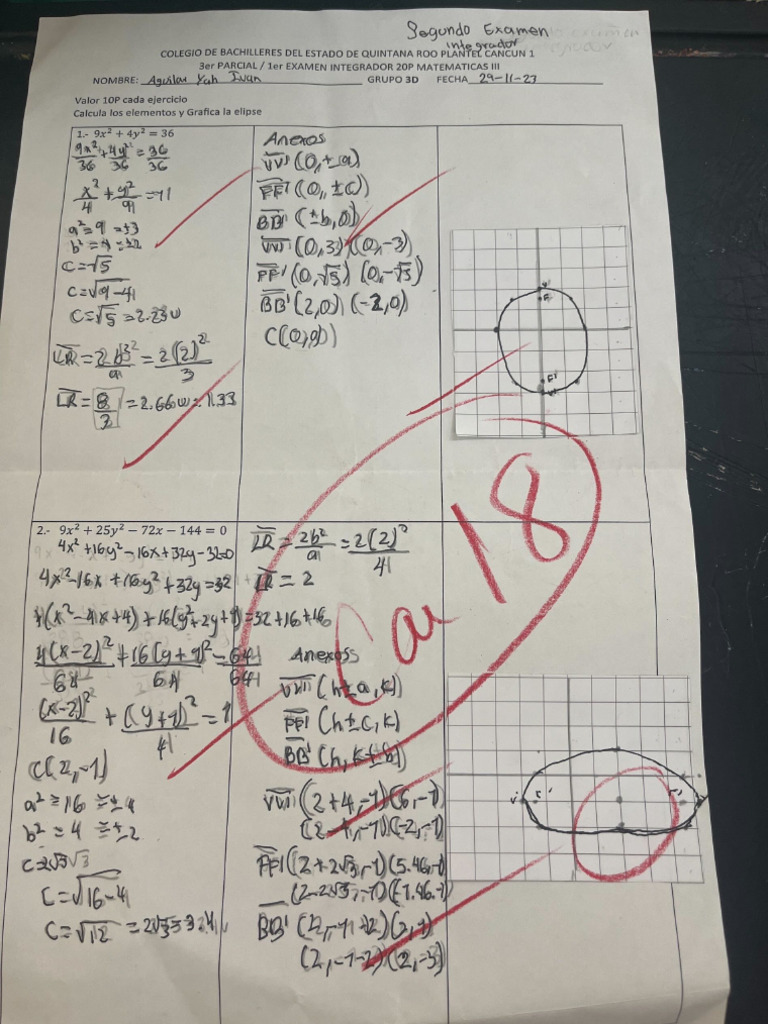 Segundo Examen
integrador
COLEGIO DE BACHILLERES DEL ESTADO DE QUINTANA ROO PLANTEL CANCUN 1
3er PARCIAL / 1er EXAMEN INTEGRADOR 20P MATEMATICAS III
NOMBRE: Aguilar Yah Ivan GRUPO 3D FECHA 29-11-23
Valor 10P cada ejercicio
Calcula los elementos y Grafica la elipse
1.- 9x² + 4y² = 36
9x²/36 + 4y²/36 = 36/36
x²/4 + y²/9 = 1
a² = 9 = ±3
b² = 4 = ±2
c = √5
c = √9-4
c = √5 = 2.23u
LR = 2b²/a = 2(2)²/3
LR = 8/3 = 2.66u = 1.33
Anexos
VV' (0, ±a)
FF' (0, ±c)
BB' (±b, 0)
VV' (0, 3) (0, -3)
FF' (0, √5) (0, -√5)
BB' (2, 0) (-2, 0)
C(0, 0)
Cal 18
2.- 9x² + 25y² − 72x − 144 = 0
4x² + 16y² - 16x + 32y - 32 = 0
4x² - 16x + 16y² + 32y = 32
4(x² - 4x + 4) + 16(y² + 2y + 1) = 32 + 16 + 16
4(x-2)²/64 + 16(y+1)²/64 = 64/64
(x-2)²/16 + (y+1)²/4 = 1
C(2, -1)
a² = 16 = ±4
b² = 4 = ±2
c = 2√3
c = √16-4
c = √12 = 2√3 = 3.4u
LR = 2b²/a = 2(2)²/4
LR = 2
Anexos
VV' (h±a, k)
FF' (h±c, k)
BB' (h, k±b)
VV' (2+4, -1) (6, -1)
(2-4, -1) (-2, -1)
FF' (2+2√3, -1) (5.46, -1)
(2-2√3, -1) (-1.46, -1)
BB' (2, -1+2) (2, 1)
(2, -1-2) (2, -3)